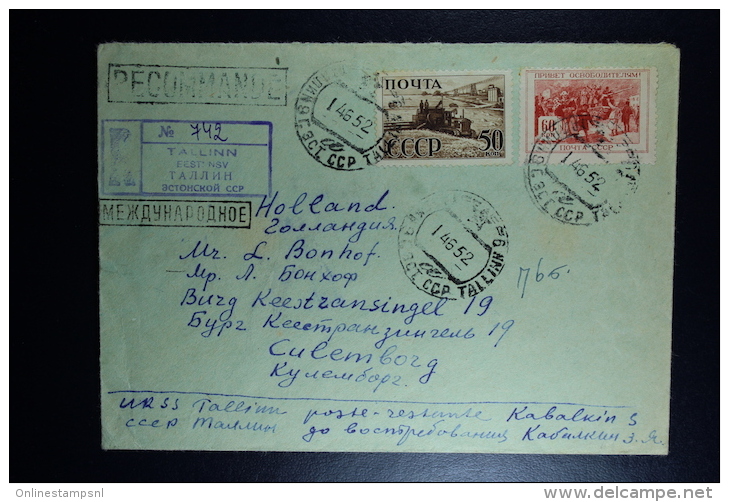 RECOMMANDÉ
№ 742
TALLINN
EESTI NSV
ТАЛЛИН
ЭСТОНСКОЙ ССР
МЕЖДУНАРОДНОЕ
ПОЧТА
50
КОП
СССР
ПРИВЕТ ОСВОБОДИТЕЛЯМ!
60
ПОЧТА СССР
1 4 6 52
ЭСТ. ССР TALLINN
1 4 6 52
ЭСТ. ССР TALLINN
1 4 6 52
ЭСТ. ССР TALLINN 6
Holland.
Голландия.
Mr. L. Bonhof.
Мр. Л. Бонхоф
Burg Keestransingel 19
Бург Кеестранзингель 19
Culemborg
Кулемборг.
URSS Tallinn poste-restante Kabalkin S
СССР Таллин до востребования Кабалкин З. Я.
Onlinestampsnl
www.delcampe.net